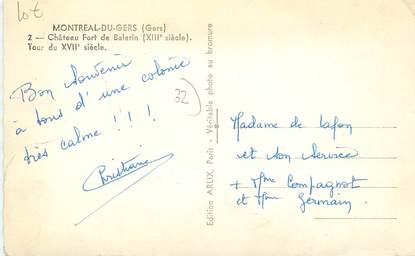 Lot
MONTREAL-DU-GERS (Gers)
2 — Château Fort de Balarin (XIIIe siècle).
Tour du XVIIe siècle.
Bon souvenir
à tous d'une colonie
très calme !!!
Christiane
32
Edition ARLIX, Paris - Véritable photo au bromure
Madame de Lafon
et son service
+ Mme Compagnot
et Mme Germain.